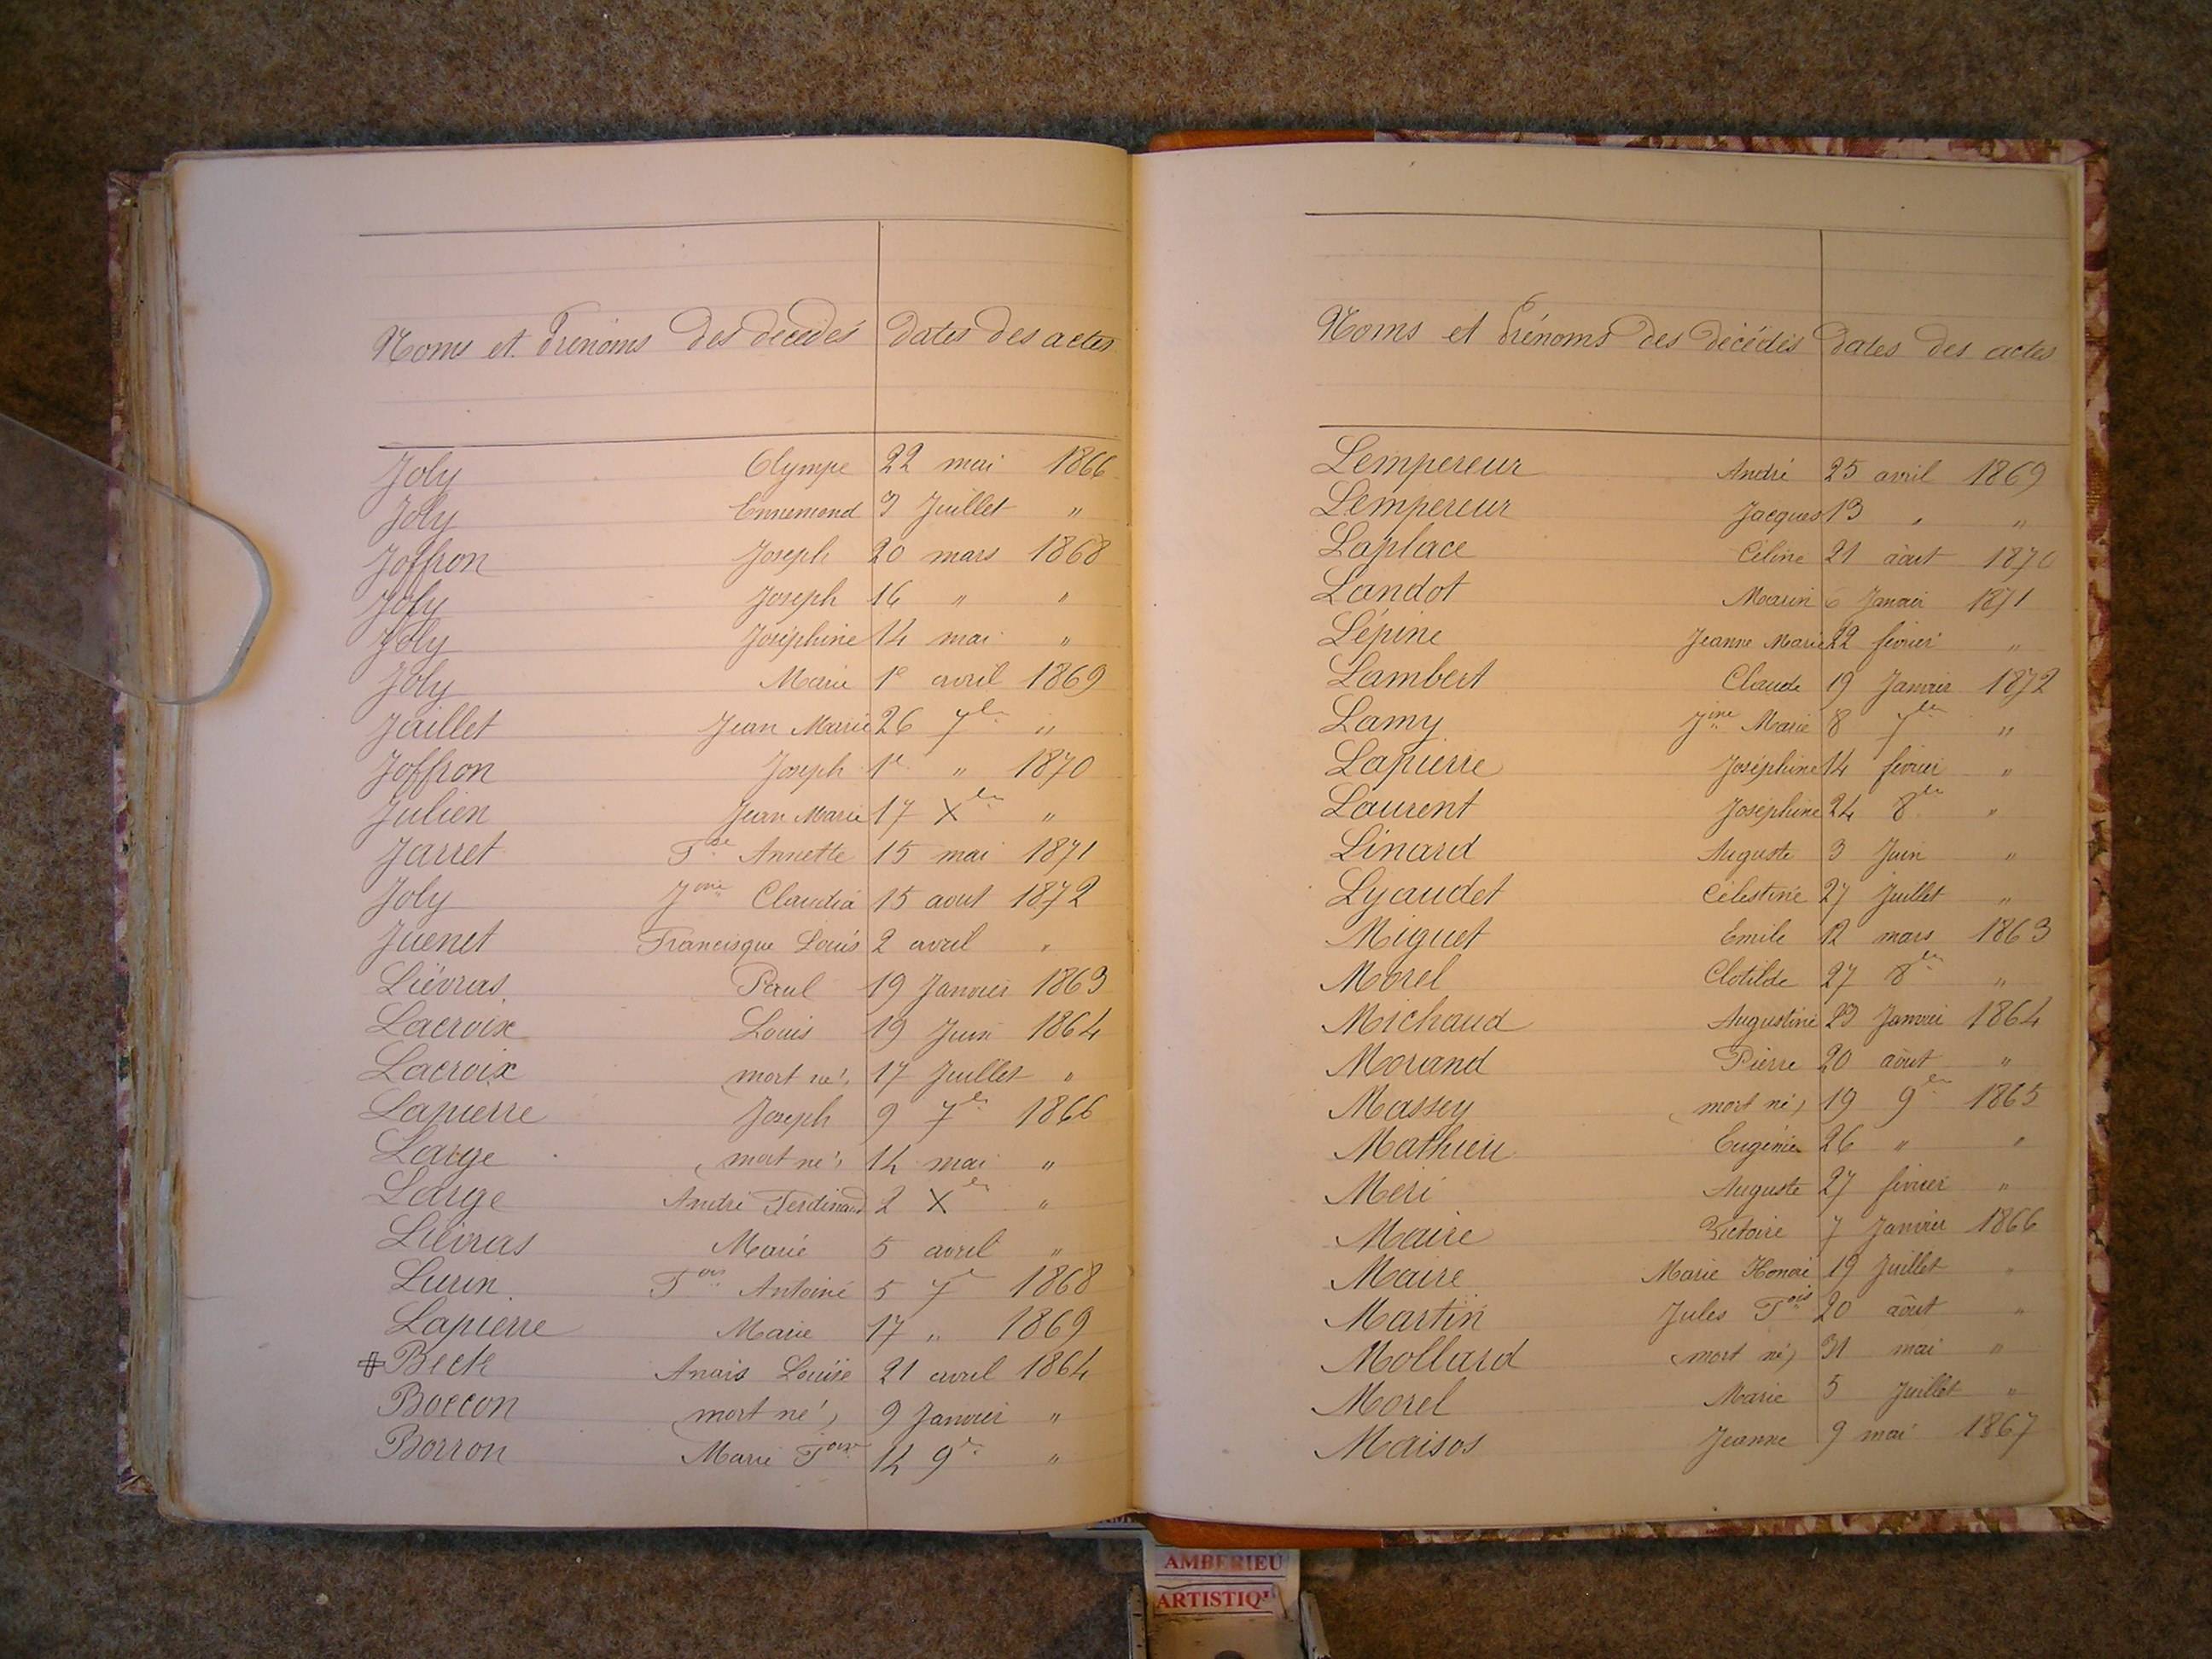 Noms et Prénoms des décédés dates des actes
Joly Olympe 22 mai 1866
Joly Ennemond 3 Juillet "
Joffron Joseph 20 mars 1868
Joly Joseph 16 " "
Joly Joséphine 14 mai "
Joly Marie 1e avril 1869
Jaillet Jean Marie 26 7bre "
Joffron Joseph 1e " 1870
Julien Jean Marie 17 Xbre "
Jarret Fse Annette 15 mai 1871
Joly Jine Claudia 15 aout 1872
Juenet Francisque Louis 2 avril "
Liévras Paul 19 Janvier 1863
Lacroix Louis 19 Juin 1864
Lacroix (mort né) 17 Juillet "
Lapierre Joseph 9 7bre 1866
Large (mort né) 14 mai "
Large André Ferdinand 2 Xbre "
Liévras Marie 5 avril "
Lurin Fois Antoine 5 7e 1868
Lapierre Marie 17 " 1869
Beck Anais Louise 21 avril 1864
Boccon (mort né) 9 Janvier "
Borron Marie Foise 14 9e "
Noms et Prénoms des décédés dates des actes
Lempereur André 25 avril 1869
Lempereur Jacques 13 " "
Laplace Céline 21 août 1870
Landot Marin 6 Janvier 1871
Lépine Jeanne Marie 22 février "
Lambert Claude 19 Janvier 1872
Lamy Jine Marie 8 7bre "
Lapierre Joséphine 14 février "
Laurent Joséphine 24 8bre "
Linard Auguste 3 Juin "
Lyaudet Célestine 27 Juillet "
Miguet Emile 12 mars 1863
Morel Clotilde 27 8bre "
Michaud Augustine 23 Janvier 1864
Morand Pierre 20 août "
Massey (mort né) 19 9bre 1865
Mathieu Eugénie 26 " "
Meri Auguste 27 février "
Maire Victoire 7 Janvier 1866
Maire Marie Honoré 19 Juillet "
Martin Jules Fois 20 août "
Mollard (mort né) 31 mai "
Morel Marie 5 Juillet "
Maisos Jeanne 9 mai 1867
AMBERIEU
ARTISTIQ